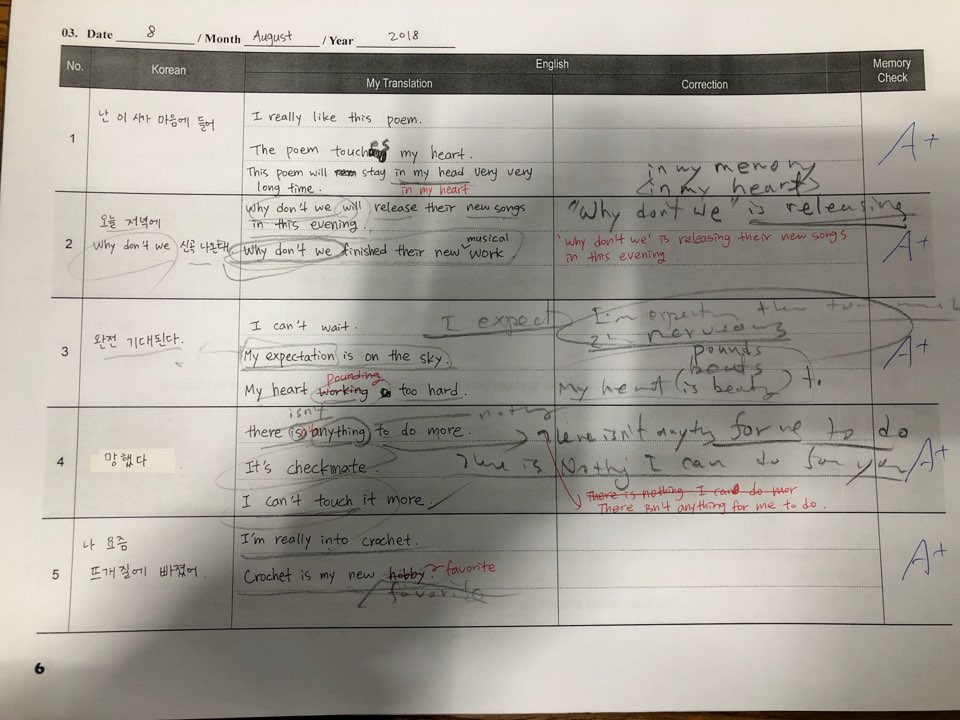 03. Date 8 / Month August / Year 2018
No. Korean English Memory Check
My Translation Correction
1 난 이 시가 마음에 들어
I really like this poem.
The poem touches my heart.
This poem will stay in my head very very
long time. in my heart
in my memory
in my heart
A+
2 오늘 저녁에
Why don't we 신곡 나온대
Why don't we will release their new songs
in this evening.
Why don't we finished their new musical work.
"Why don't we" is releasing
'Why don't we' is releasing their new songs
in this evening.
A+
3 완전 기대된다.
I can't wait. I expect
My expectation is on the sky.
pounding
My heart working too hard.
I'm
pounds
beats
My heart (is beat)
A+
4 망했다
isn't
there is anything to do more.
It's checkmate.
I can't touch it more.
there isn't for me to do
There is I can do for you
There is nothing I can do mor
There isn't anything for me to do.
A+
5 나 요즘
뜨개질에 빠졌어.
I'm really into crochet.
Crochet is my new hobby. favorite
favorite
A+
6